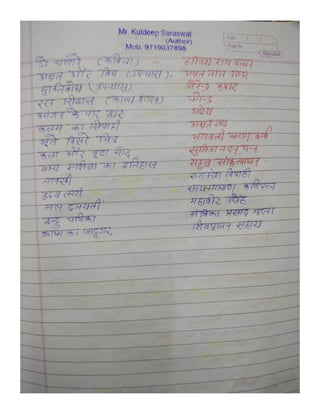 Mr. Kuldeep Saraswat
(Author)
Mob. 9719037898
Date
Page No.
दो चट्टाने (कविता) - हरिवंश राय बच्चन
अमृत और विष (उपन्यास) - अमृत लाल नागर
मुक्तिबोध (उपन्यास) जैनेन्द्र कुमार
रस सिद्धान्त (काव्य शास्त्र) नगेन्द्र
आंगन के पार द्वार अज्ञेय
कलम का सिपाही अमृत राय
भूले बिसरे चित्र भगवती चरण वर्मा
कला और बूढ़ा चाँद सुमित्रा नन्दन पन्त
मध्य एशिया का इतिहास राहुल सांकृत्यायन
मानसी रामनरेश त्रिपाठी
हृदय तरंग सत्यनारायण कविरत्न
नल दमयंती महावीर सिंह
इन्दु पत्रिका अम्बिका प्रसाद गुप्ता
भाषा का जादूगर शिवपूजन सहाय